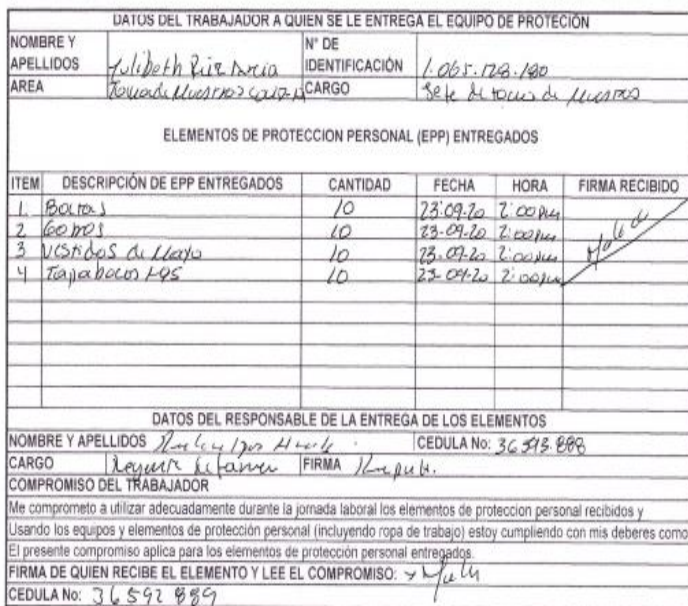 DATOS DEL TRABAJADOR A QUIEN SE LE ENTREGA EL EQUIPO DE PROTECIÓN
NOMBRE Y APELLIDOS Yulibeth N° DE IDENTIFICACIÓN 1.065.128.180
AREA Toma de Muestras CARGO Jefe de toma de Muestras
ELEMENTOS DE PROTECCION PERSONAL (EPP) ENTREGADOS
ITEM DESCRIPCIÓN DE EPP ENTREGADOS CANTIDAD FECHA HORA FIRMA RECIBIDO
1. Batas 10 23-09-20 2:00pm
2 Gorros 10 23-09-20 2:00pm
3 Vestidos de Mayo 10 23-09-20 2:00pm
4 Tapabocas N95 10 23-09-20 2:00pm
DATOS DEL RESPONSABLE DE LA ENTREGA DE LOS ELEMENTOS
NOMBRE Y APELLIDOS CEDULA No: 36.593.888
CARGO Regente de FIRMA
COMPROMISO DEL TRABAJADOR
Me comprometo a utilizar adecuadamente durante la jornada laboral los elementos de proteccion personal recibidos y
Usando los equipos y elementos de protección personal (incluyendo ropa de trabajo) estoy cumpliendo con mis deberes como
El presente compromiso aplica para los elementos de protección personal entregados.
FIRMA DE QUIEN RECIBE EL ELEMENTO Y LEE EL COMPROMISO:
CEDULA No: 36592889